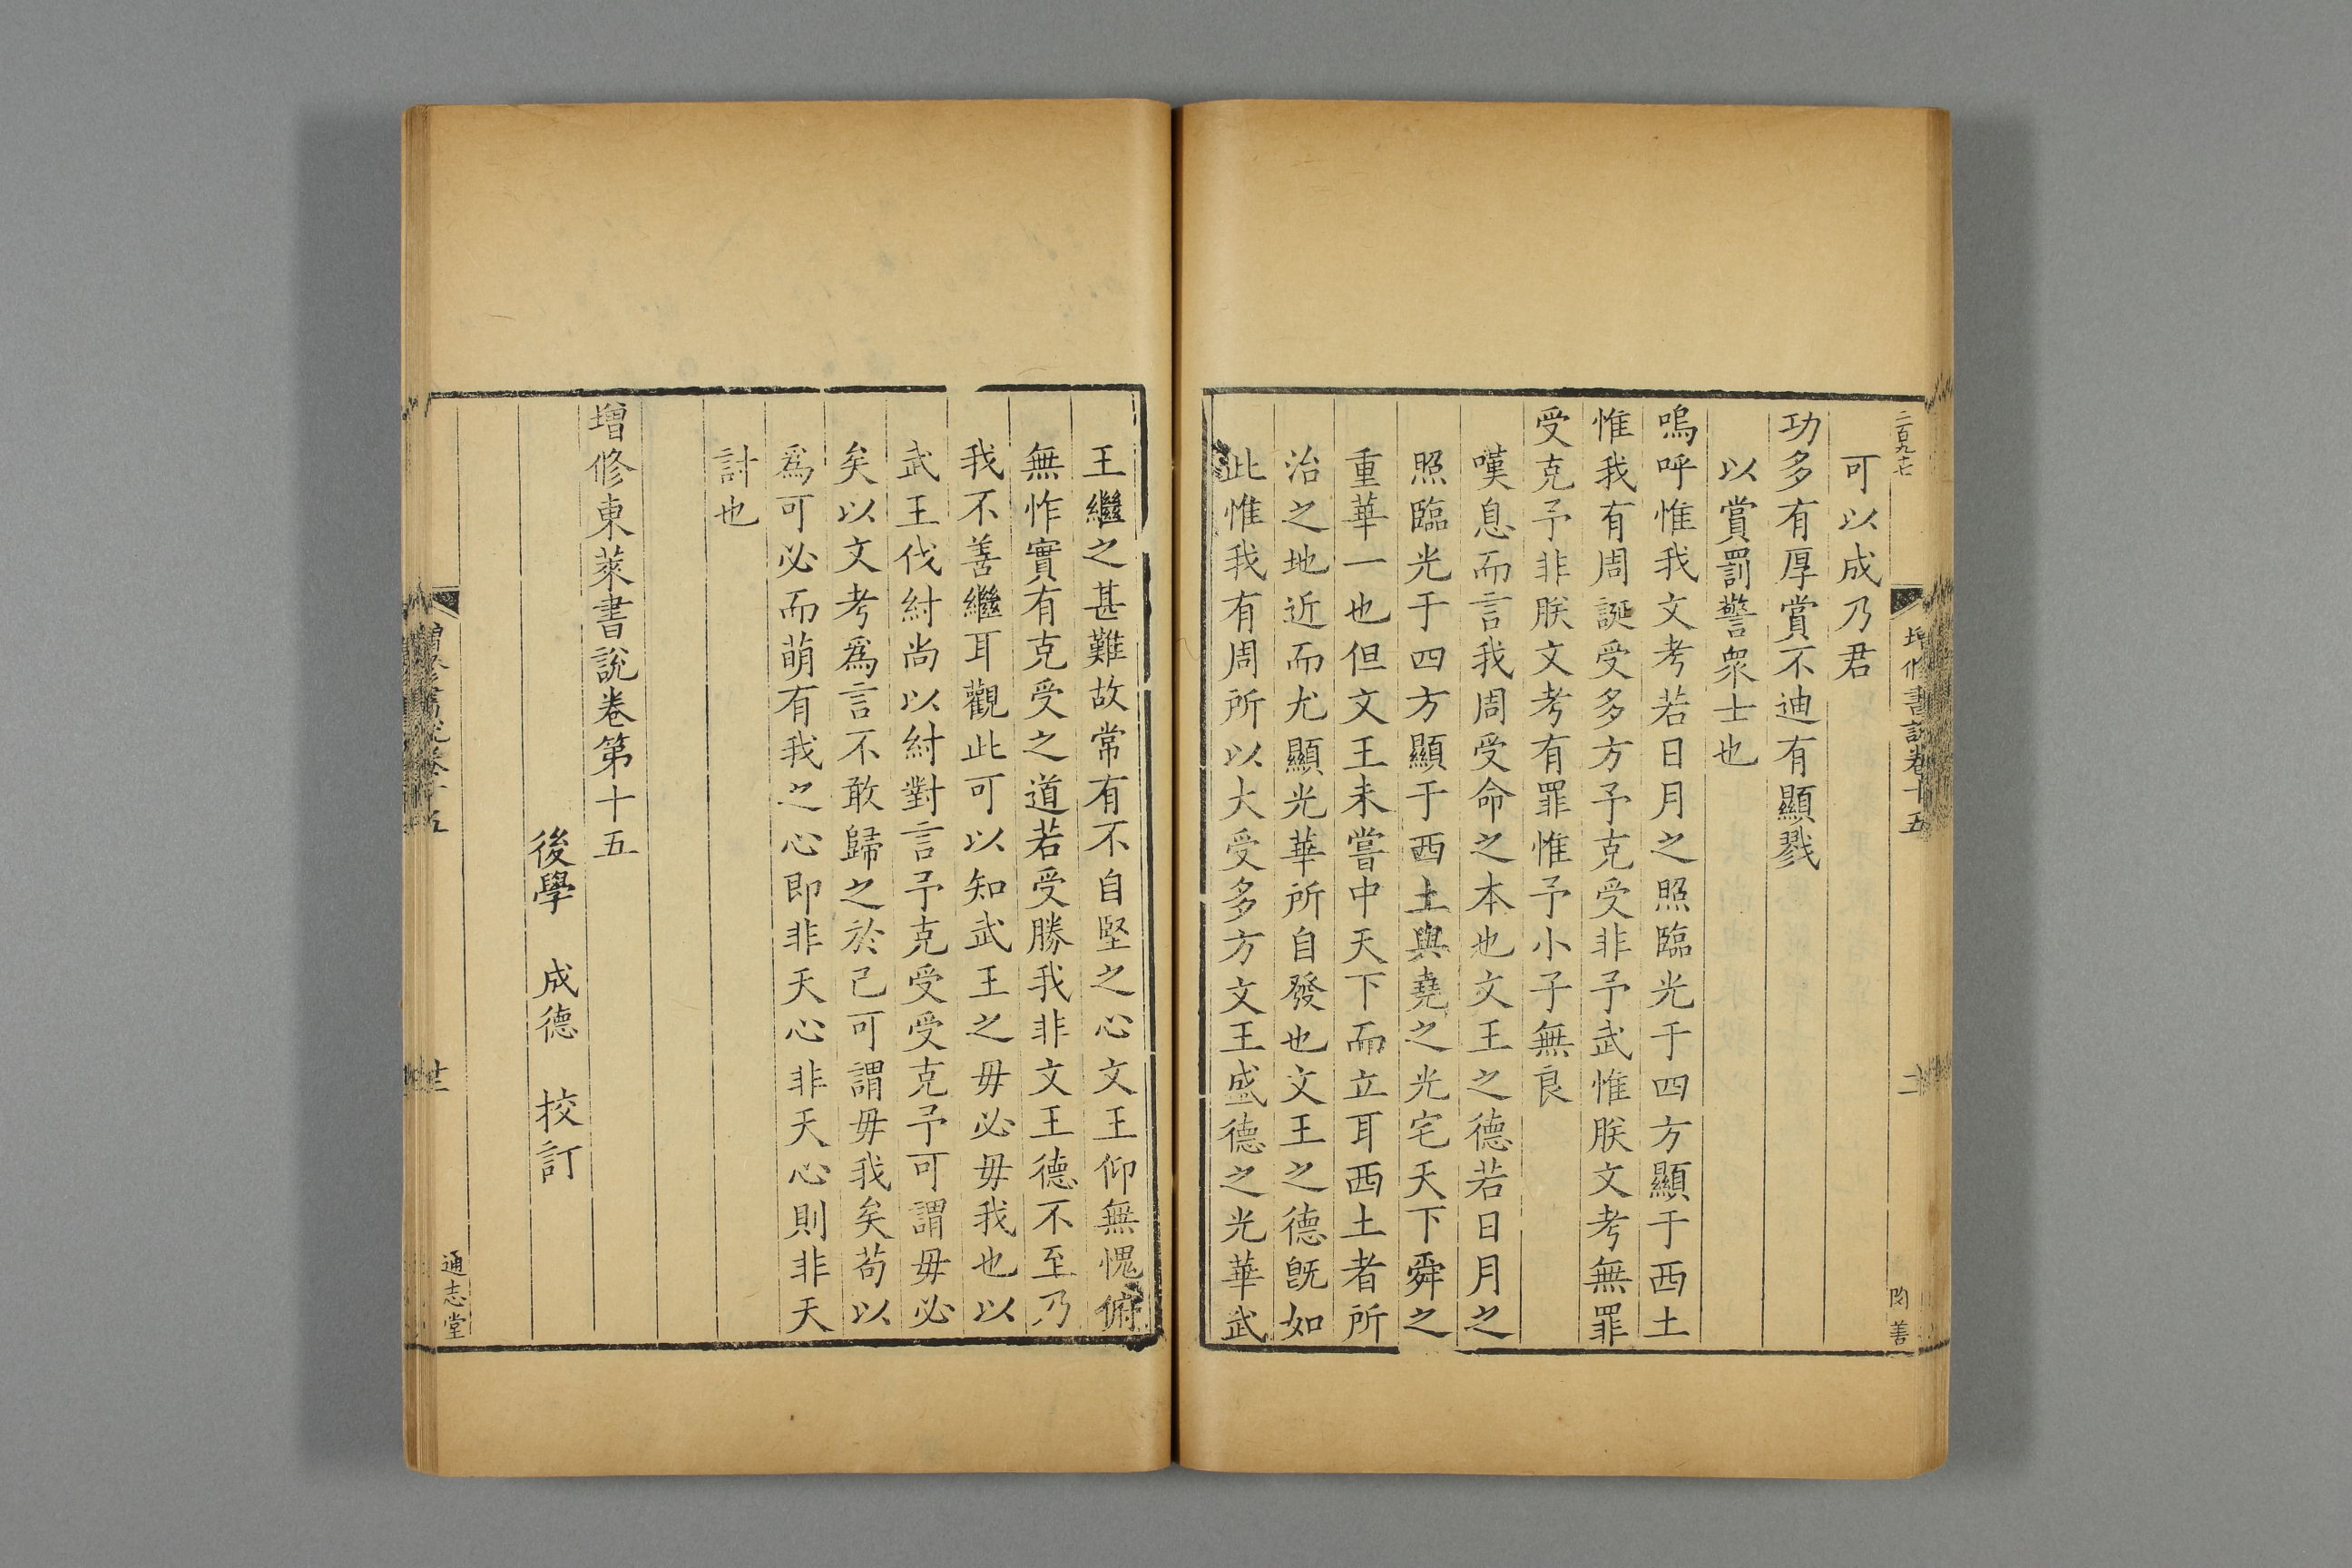 二百九七
增修書說卷十五
可以成乃君
功多有厚賞不迪有顯戮
以賞罰警眾士也
嗚呼惟我文考若日月之照臨光于四方顯于西土
惟我有周誕受多方予克受非予武惟朕文考無罪
受克予非朕文考有罪惟予小子無良
嘆息而言我周受命之本也文王之德若日月之
照臨光于四方顯于西土與堯之光宅天下舜之
重華一也但文王未嘗中天下而立耳西土者所
治之地近而尤顯光華所自發也文王之德旣如
此惟我有周所以大受多方文王盛德之光華武
王繼之甚難故常有不自堅之心文王仰無愧俯
無怍實有克受之道若受勝我非文王德不至乃
我不善繼耳觀此可以知武王之毋必毋我也以
武王伐紂尚以紂對言予克受受克予可謂毋必
矣以文考爲言不敢歸之於己可謂毋我矣苟以
爲可必而萌有我之心即非天心非天心則非天
討也
增修東萊書說卷第十五
後學 成德 校訂
通志堂